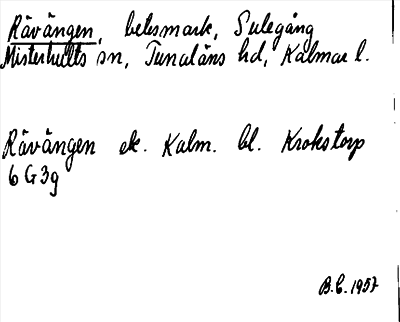 Rävängen, betesmark, Sulegång
Misterhults sn, Tunaläns hd, Kalmar l.
Rävängen ek. Kalm. bl. Krokstorp
6 G 3g
B.C. 1957